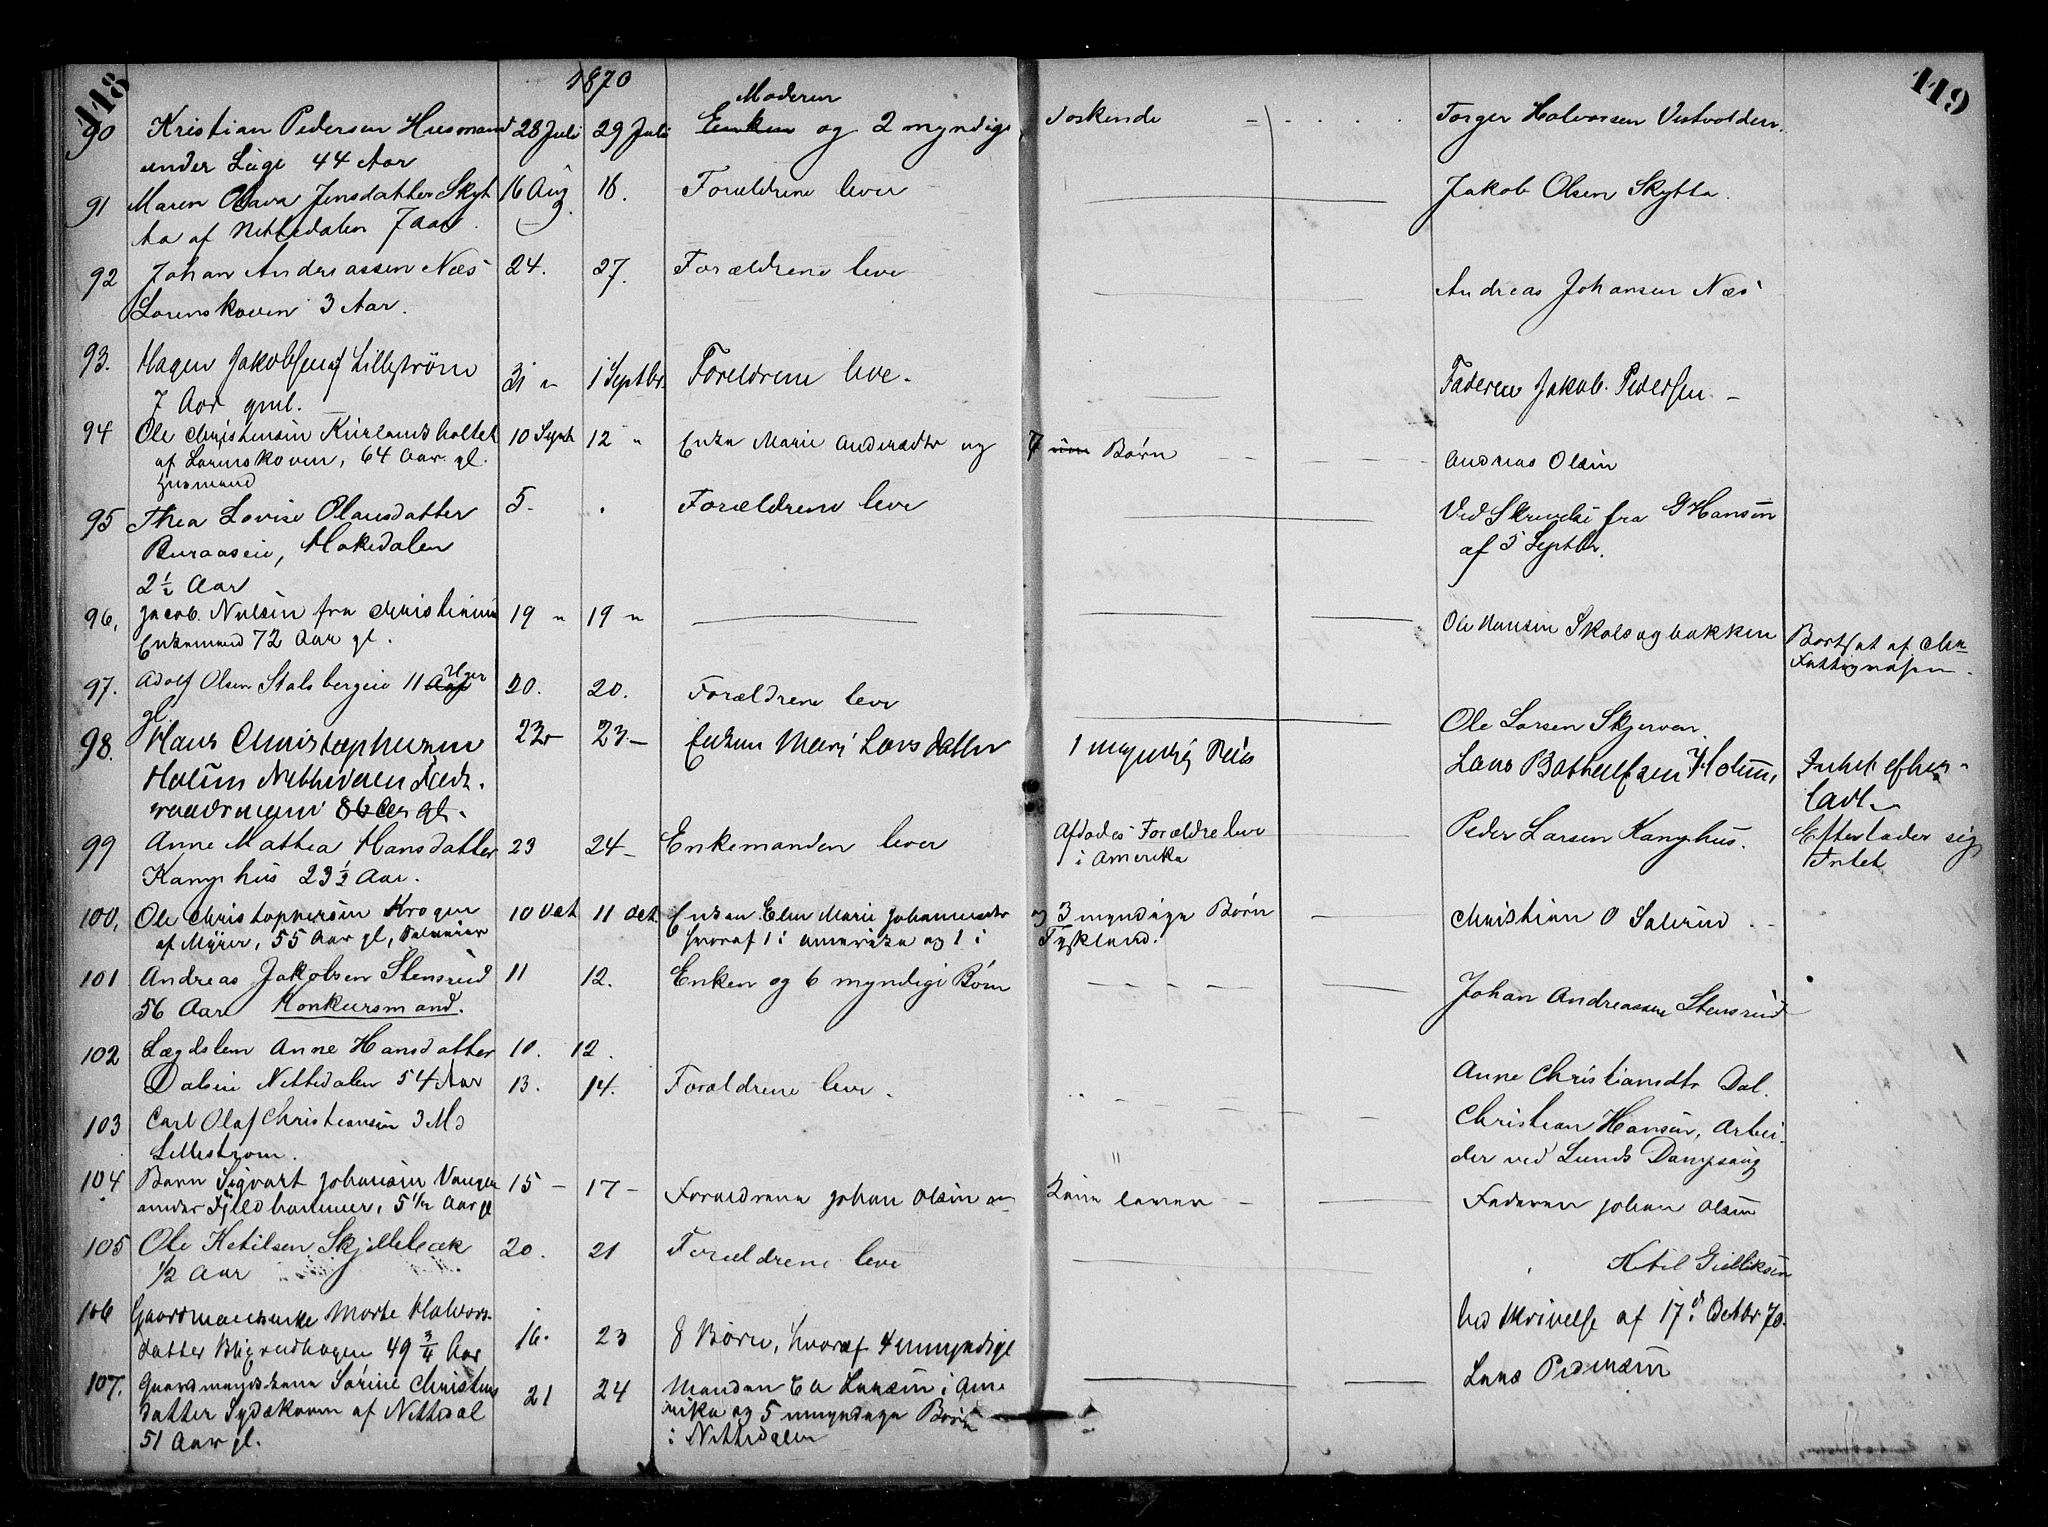 118
1870
119
90 Kristian Pedersen Husmand 28 Juli 29 Juli Moderen Enken og 2 myndige Søskende Torger Halvorsen Vestvolden.
under Lüge 44 Aar
91 Maren Olava Jensdatter Skyt 16 Aug. 18. Forældrene lever Jakob Olsen Skytta
ta af Nittedalen 7 aar.
92 Johan Andreassen Næs 24. 27. Forældrene leve Andreas Johansen Næs
Lørenskoven 3 Aar.
93. Hagen Jakobsen af Lillestrøm 31 " 1 Septbr. Foreldrene leve. Faderen Jakob Pedersen
7 Aar gml.
94 Ole Christensen Kurlandsholtet 10 Septb 12 " Enke Marie Andersdtr og 7 Børn Andreas Olsen
af Lørenskoven, 64 Aar gl.
Husmand
95 Thea Lovise Olausdatter 5. . Forældrene leve Ved Skrivelse fra G Hansen
Buraaseie, Hakedalen af 5 Septbr.
2½ Aar
96. Jacob Nilsen fra Christiania 19 " 19 " Ole Hansen Skalsogbakken Bortsat af Chra
Enkemand 72 Aar gl. Fattigvæsen.
97. Adolf Olsen Stalsbergeie 11 Aar Uger 20. 20. Forældrene leve Ole Larsen Skjerven.
gl.
98. Hans Christophersen 22 23 Enken Mari Larsdatter 1 myndig Lars Bothelfsen Holum, Intet efter-
Holum Nittedalen Føde- ladt.
raadsmand 86 Aar gl.
99 Anne Mathea Hansdatter 23 24 Enkemanden lever Afdødes Forældre leve Peder Larsen Kamphus. Efterlader sig
Kamphus 23½ Aar. i Amerika Intet
100, Ole Christophersen Krogen 10 Oct 11 Oct. Enken Elen Marie Johannesdtr og 3 myndige Børn Christian O Solerud
af Myrer, 55 Aar gl, hvoraf 1 i Amerika og 1 i Tyskland.
101 Andreas Jakobsen Stensrud 11 12. Enken og 6 myndige Børn Johan Andreassen Stensrud
56 Aar Konkursmand.
102 Lægdslem Anne Hansdatter 10. 12.
Daleie Nittedalen 54 Aar 13. 14. Forældrene leve. Anne Christiansdtr Dal.
103 Carl Olaf Christiansen 3 Md Christian Hansen, Arbei-
Lillestrøm. der ved Lunds Dampsaug
104 Barn Sigvart Johansen Vangen 15 - 17 - Forældrene Johan Olsen og lever Faderen Johan Olsen
under Fjeldhammer, 5½ Aar gl
105 Ole Ketilsen Skjellebæk 20. 21 Forældrene leve Ketil Gulliksen
½ Aar
106 Gaardmandsenke Marte Halvors- 16. 23 8 Børn, hvoraf 4 umyndige Ved Skrivelse af 17d Octbr 70.
datter Bligrudhagen 49 ¾ Aar
107. Gaardmandskone Sørine Christens 21 24 Manden E Larsen i Ame Lars Pedersen
datter Sydskoven af Nittedal rika og 5 umyndige Børn
51 Aar gl. i Nittedalen